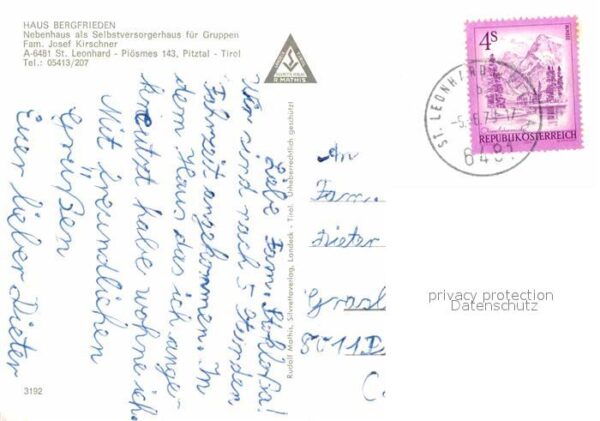 HAUS BERGFRIEDEN
Nebenhaus als Selbstversorgerhaus für Gruppen
Fam. Josef Kirschner
A-6481 St. Leonhard - Piösmes 143, Pitztal - Tirol
Tel.: 05413/207
R. MATHIS
Liebe Fam.
Wir sind nach 5 Stunden
Fahrzeit angekommen. In
dem Haus das ich ange-
kreutzt habe wohne ich
Mit freundlichen
Grüßen
Euer lieber Dieter
Rudolf Mathis, Silvrettaverlag, Landeck - Tirol. Urheberrechtlich geschützt
3192
An
Fam.
Dieter
4S
REPUBLIK ÖSTERREICH
ST. LEONHARD
6481
privacy protection
Datenschutz